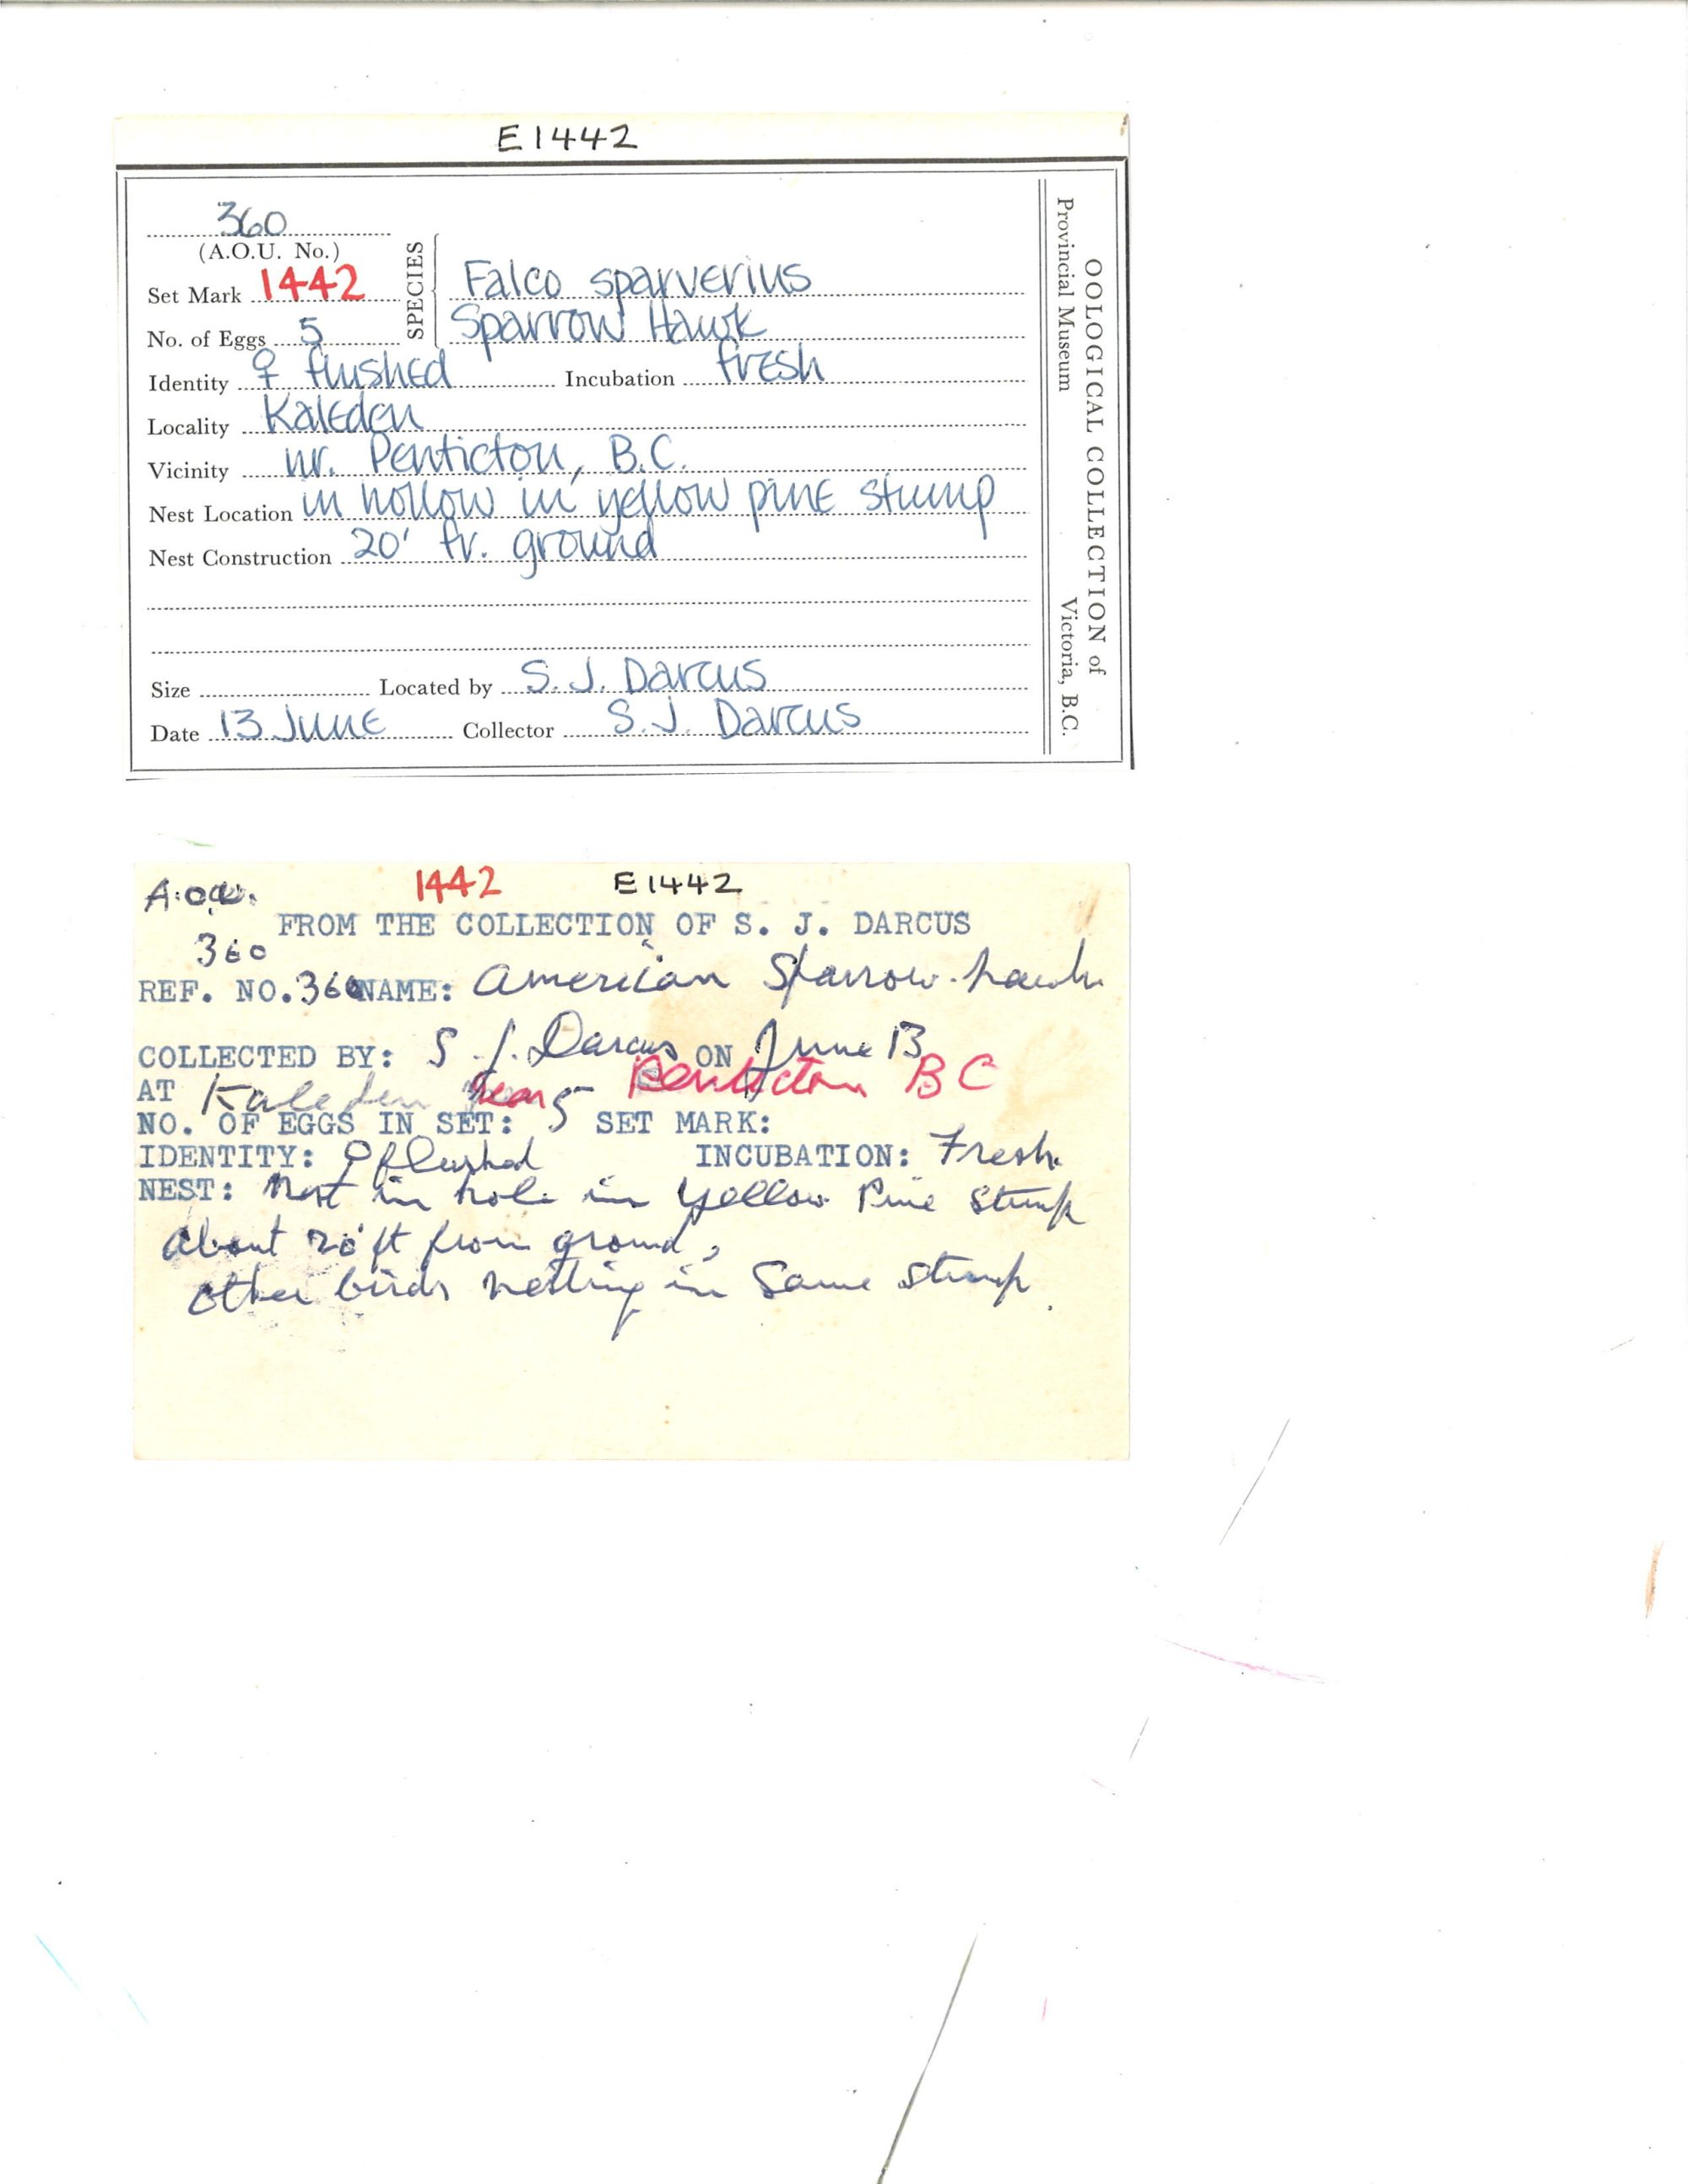 E1442
360
(A.O.U. No.)
Set Mark 1442
SPECIES
Falco sparverius
No. of Eggs 5
Sparrow Hawk
Identity ♀ flushed Incubation fresh
Locality Kaleden
Vicinity nr. Penticton, B.C.
Nest Location in hollow in yellow pine stump
Nest Construction 20' fr. ground
Size Located by S. J. Darcus
Date 13 June Collector S. J. Darcus
OOLOGICAL COLLECTION of
Provincial Museum Victoria, B.C.
A.O.U. 1442 E1442
FROM THE COLLECTION OF S. J. DARCUS
360
REF. NO. 360 NAME: American Sparrow-hawk
COLLECTED BY: S. J. Darcus ON June 13
AT Kaleden near Penticton BC
NO. OF EGGS IN SET: 5 SET MARK:
IDENTITY: ♀ flushed INCUBATION: Fresh.
NEST: Nest in hole in yellow Pine stump
about 20 ft from ground,
other birds nesting in same stump.